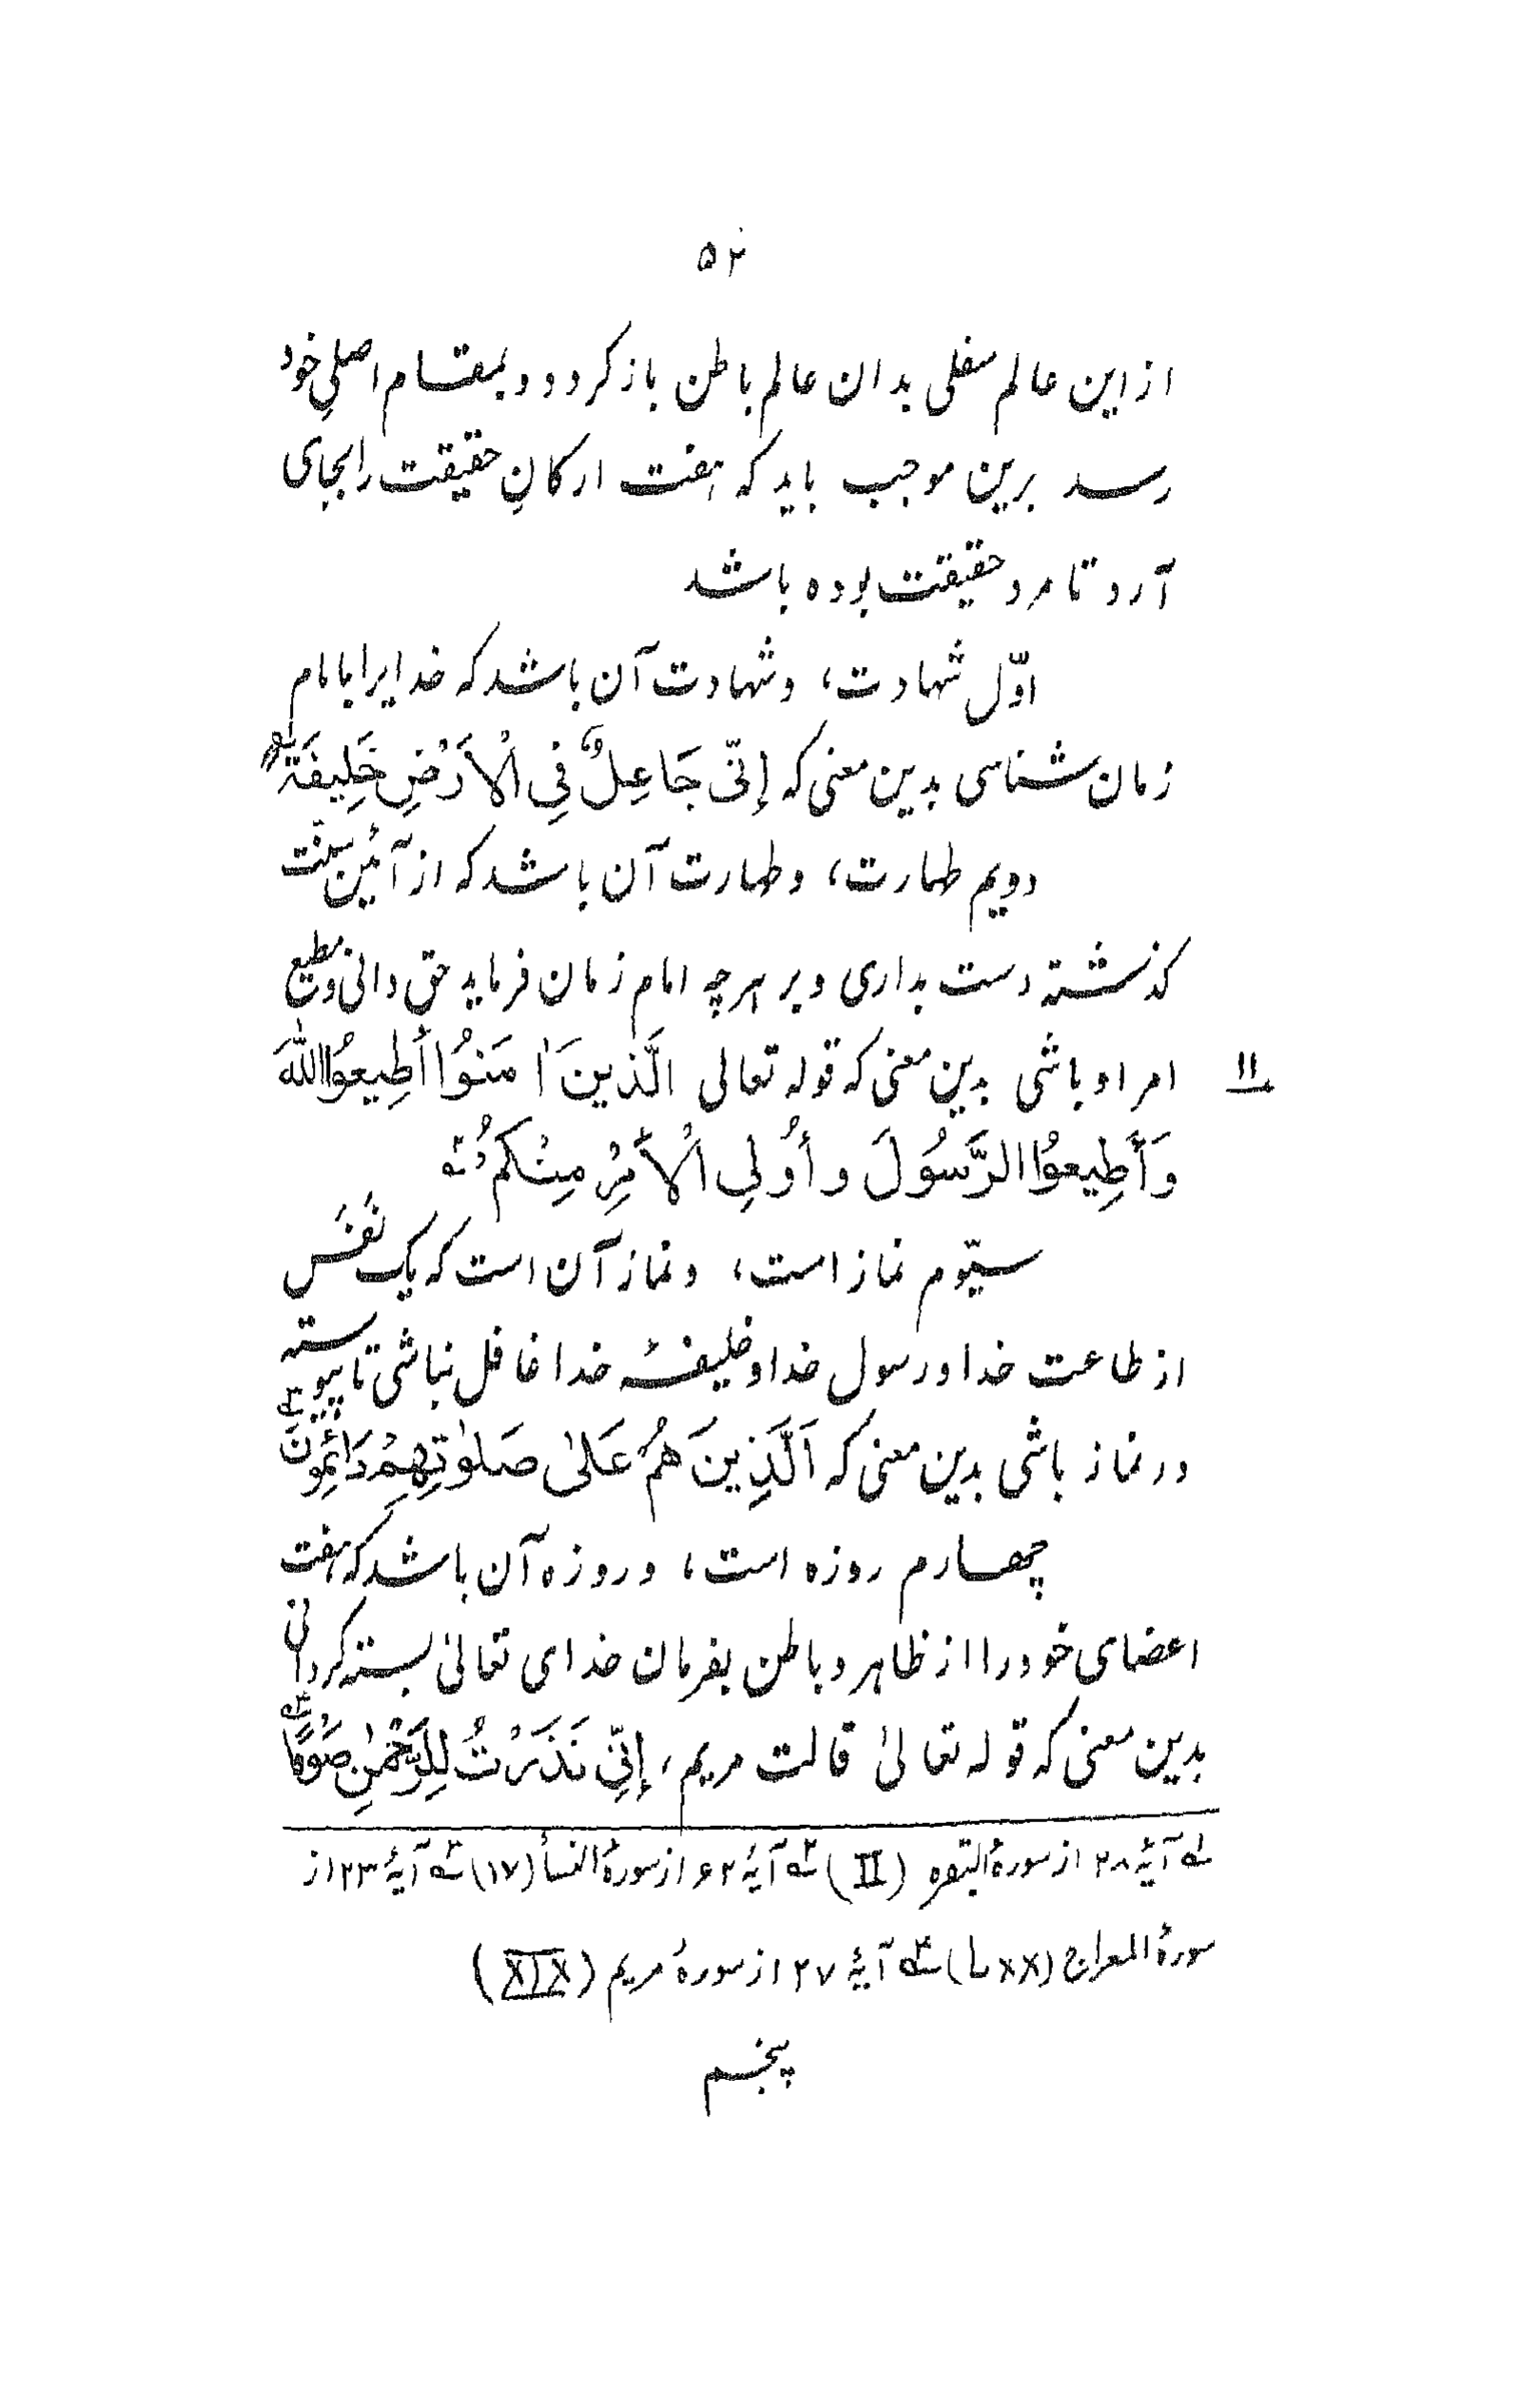 ۵۲
از این عالم سفلی بدان عالم باطن باز کردد و بمقام اصلیِ خود
رسد برین موجب باید که هفت ارکانِ حقیقت را بجای
آرد تا مرد حقیقت بوده باشد
اوّل شهادت، و شهادت آن باشد که خدایرا با امام
زمان شناسی بدین معنی که إنّی جَاعِلٌ فِی الْأَرْضِ خَلِیفَةً
دویم طهارت، و طهارت آن باشد که از آئین سنّت
کذشته دست بداری و بر هرچه امام زمان فرماید حق دانی و مطیع
امر او باشی بدین معنی که قوله تعالی الَّذینَ اٰمَنوُا أَطِیعوُا اللهَ
۱۱
وَأَطِیعوُا الرَّسُولَ وأُولِی الْأَمْرِ مِنْکُم
سیّوم نماز است، و نماز آن است که یک نَفَس
از طاعت خدا و رسول خدا و خلیفهٔ خدا غافل نباشی تا پیوسته
در نماز باشی بدین معنی که اَلَّذِینَ هُمْ عَلیٰ صَلوٰتِهِمْ دَائِمُونَ
چهارم روزه است، و روزه آن باشد که هفت
اعضای خود را از ظاهر و باطن بفرمان خدای تعالیٰ بسته کردانی
بدین معنی که قوله تعالیٰ قالت مریم، إنِّی نَذَرْتُ لِلرَّحْمٰنِ صَوْمًا
۱ه آیهٔ ۲۸ از سورهٔ البقره (II) ۲ه آیهٔ ۶۲ از سورهٔ النسأ (۱۷) ۳ه آیهٔ ۲۳ از
سورهٔ المعراج (Lxx) ۴ه آیهٔ ۲۷ از سورهٔ مریم (XIX)
پنجم